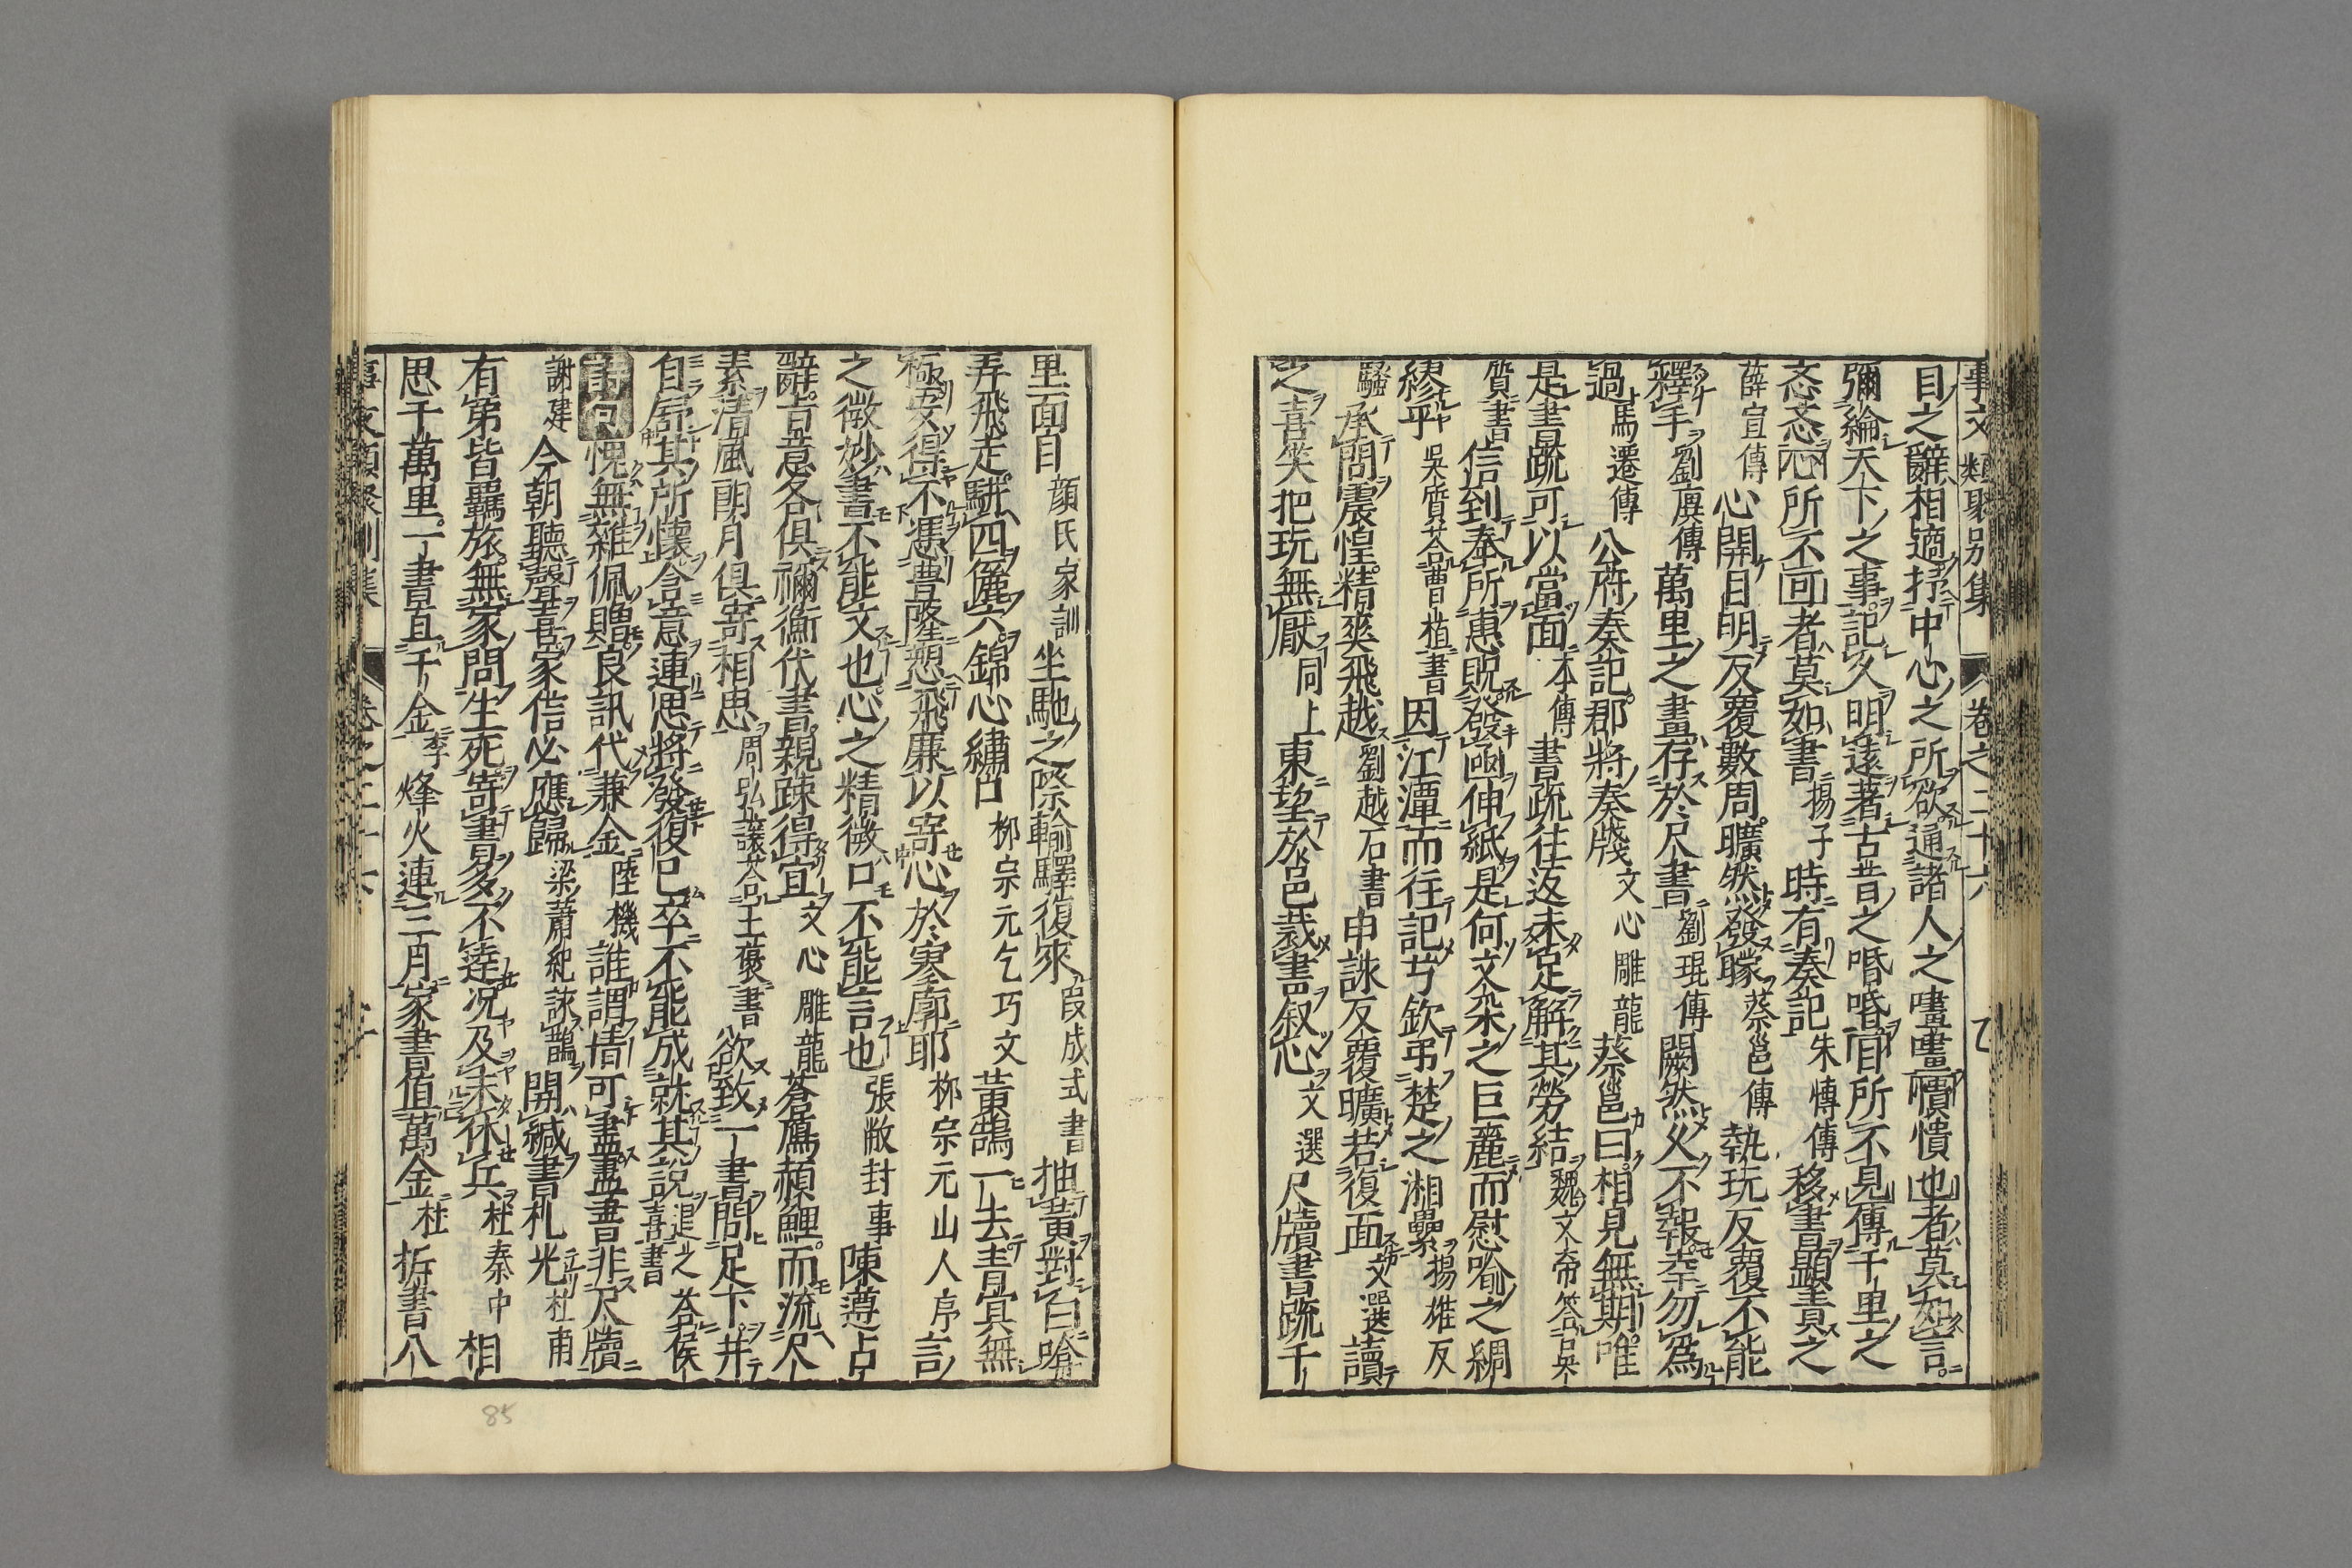 事文類聚别集 卷之二十六 七
目之辭相適抒中心之所欲通諸人之嚍嚍者莫如言
彌綸天下之事記久明遠著古昔之㖧㖧傳千里之
忞忞者莫如書揚子時有奏記朱博傳移書顯責之
薛宣傳心開目明反覆數周曠然發矇蔡邕傳執玩反覆不能
釋手劉虞傳萬里之畫存於尺書劉琨傳闕然久不報幸勿爲
過馬遷傳公府奏記郡將奏牋文心雕龍蔡邕曰相見無期唯
是書疏可以當面本傳書疏往返未足解其勞結魏文帝答吳
質書信到奉所惠貺發函伸紙是何文采之巨麗而慰喻之綢
繆乎吳質答曹植書因江潭而往記兮欽弔楚之湘纍揚雄反
騷承問震惶精爽飛越劉越石書申詠反覆曠若復面文選讀
之喜笑把玩無厭同上東望於邑裁書叙心文選尺牘書疏千
里面目顏氏家訓坐馳之際輸驛復來段成式書抽黃對白啽
弄飛走駢四儷六錦心繡口柳宗元乞巧文黃鵠一去青冥無
極安得不馮豊隆愬飛廉以寄心於寥廓耶柳宗元山人序言
之微妙書不能文也心之精微口不能言也張敞封事陳遵占
辭百意各俱禰衡代書親疎得宜文心雕龍蒼鴈頳鯉而流尺
素清風朗月俱寄相思周弘讓荅王褒書欲致一書問足下并
自舒其所懷含意連思將發復已卒不能成就其説喜退之荅侯書
詩句愧無雜佩贈良訊代兼金陸機誰謂情可盡盡言非尺牘
謝建今朝聽聲喜家信必應歸梁蕭紀詠鵲開緘書札光杜甫
有第皆羈旅無家問生死寄書多不達况及未休兵杜秦中相
思千萬里一書直千金李烽火連三月家書値萬金杜拆書八
事文類聚别集 卷之二十六
85